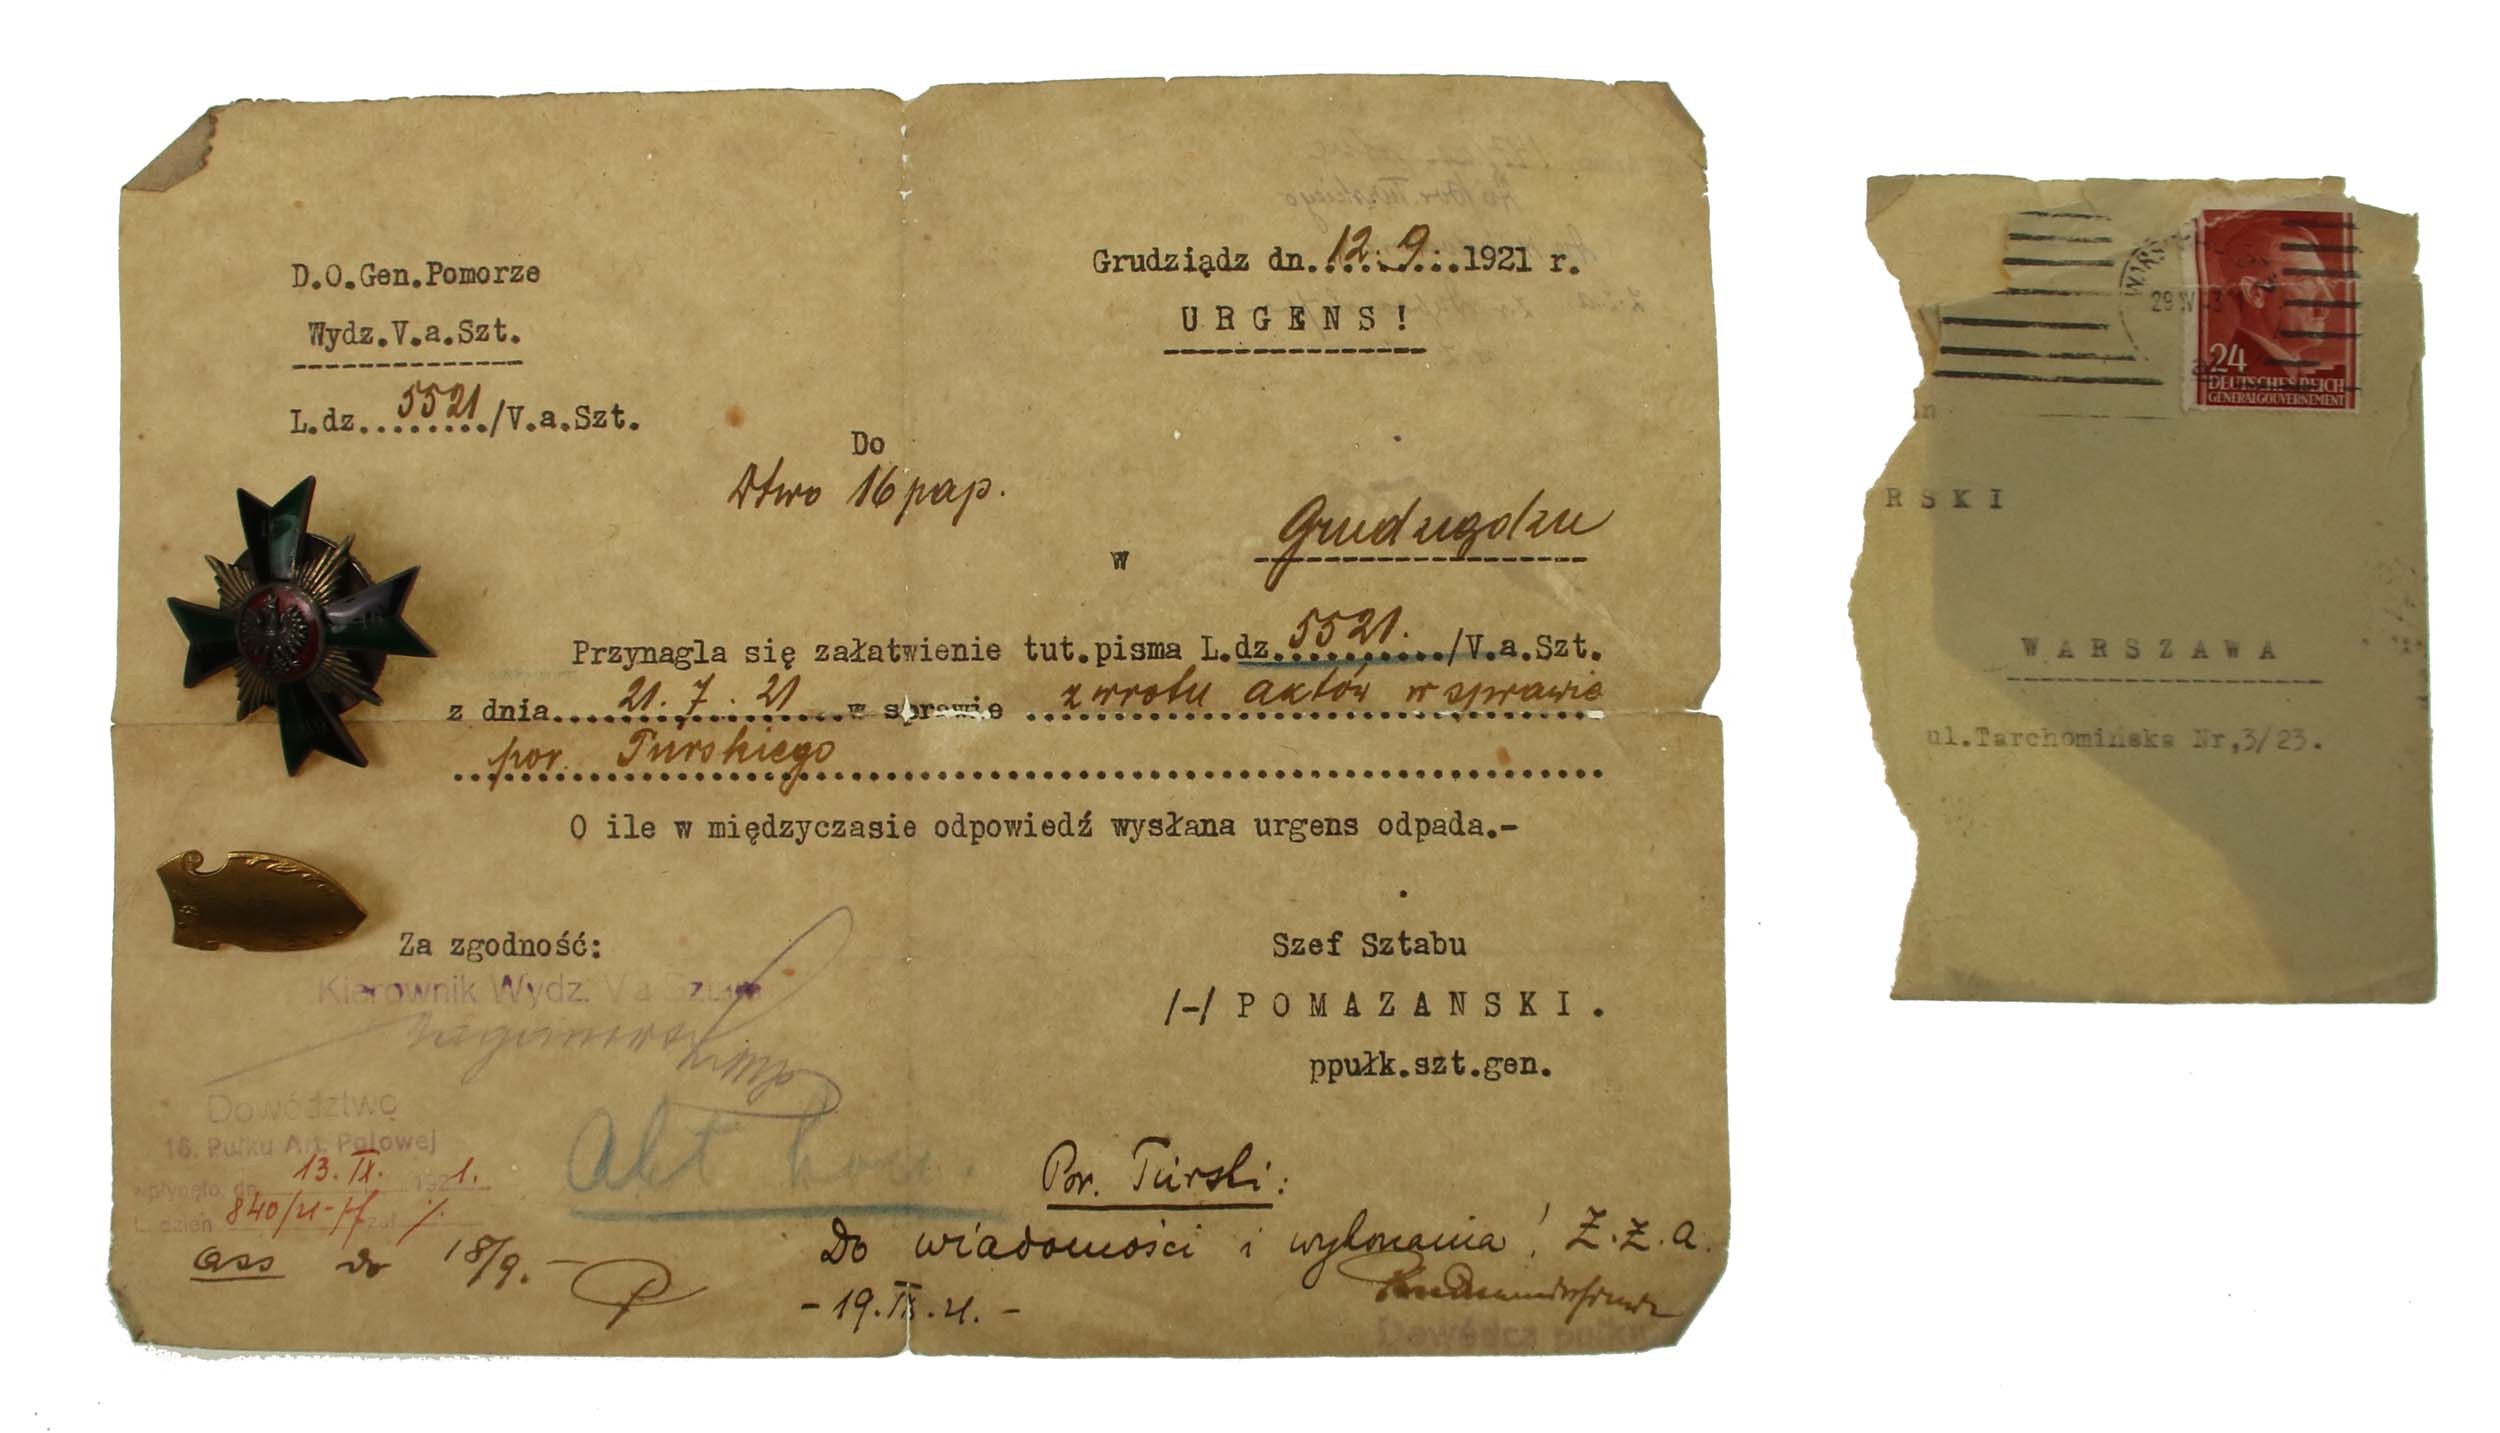 D.O.Gen.Pomorze
Wydz.V.a.Szt.
L.dz.5521/V.a.Szt.
Grudziądz dn.12.9.1921 r.
URGENS!
Do
Dtwo 16 pap.
w Grudziądzu
Przynagla się załatwienie tut.pisma L.dz.5521./V.a.Szt.
z dnia 21.7.21 w sprawie zwrotu aktów w sprawie
por. Turskiego
O ile w międzyczasie odpowiedź wysłana urgens odpada.-
Za zgodność:
Kierownik Wydz. V a
Szef Sztabu
/-/ POMAZANSKI.
ppułk.szt.gen.
Dowództwo
16. Pułku Art. Polowej
wpłynęło dn. 13.IX. 1921.
L. dzien 840/21 zał. %
ass do 18/9.-
Akt
Por. Turski:
Do wiadomości i wykonania! Z.Z.A.
-19.IX.21.-
Dowódca pułku
24
DEUTSCHES REICH
GENERALGOUVERNEMENT
RSKI
WARSZAWA
ul.Tarchomińska Nr,3/23.